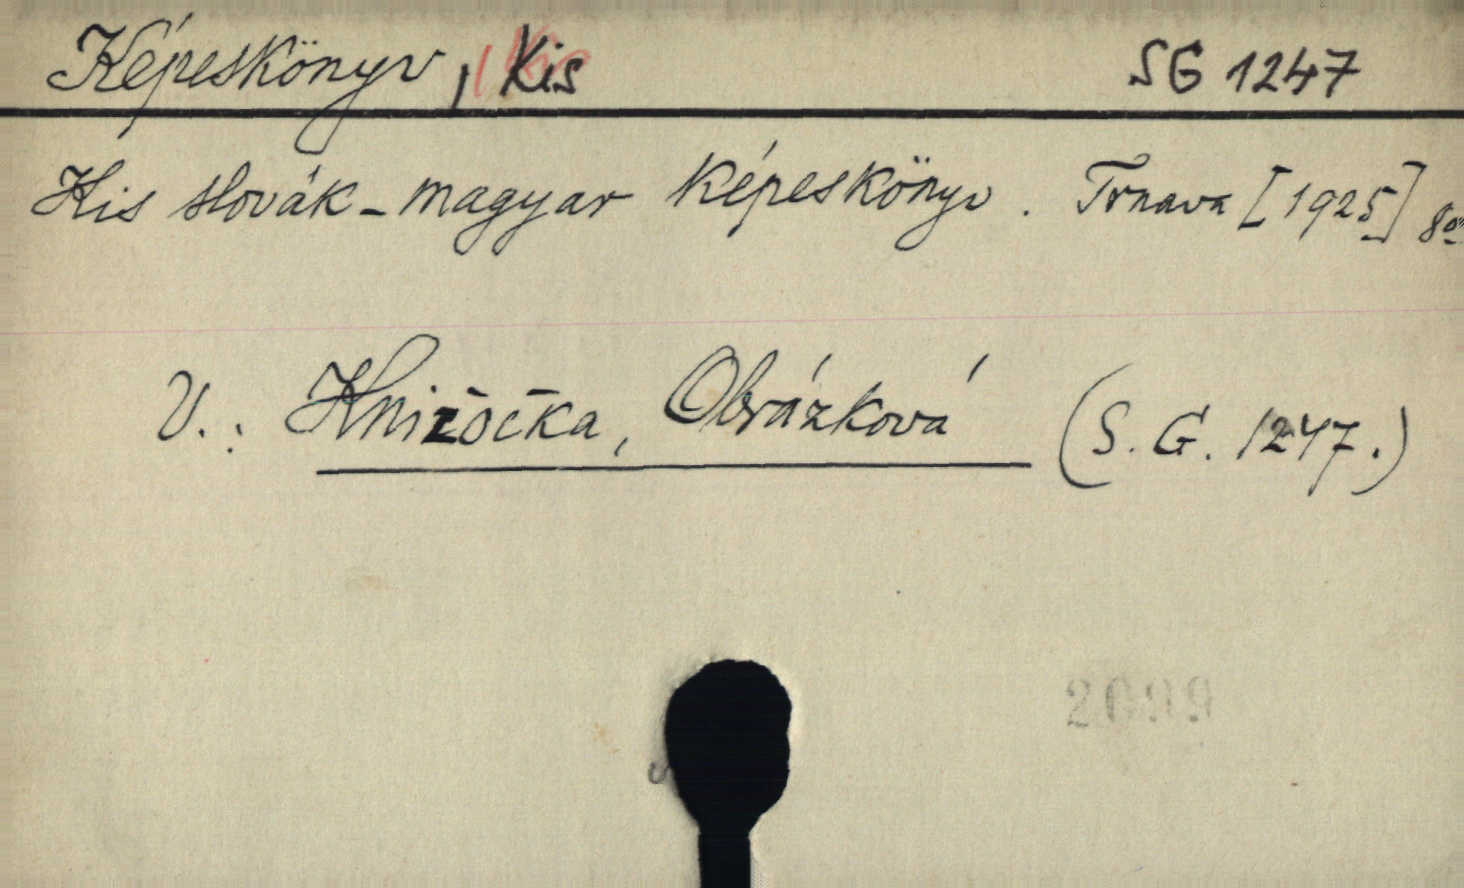 Képeskönyv, Kis SG 1247
Kis slovák-magyar képeskönyv. Trnava [1925] 8o
V.: Knižočka, Obrázková (S. G. 1247.)
2699